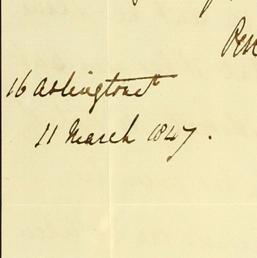 Pen
16 Arlington St
11 March 1847.